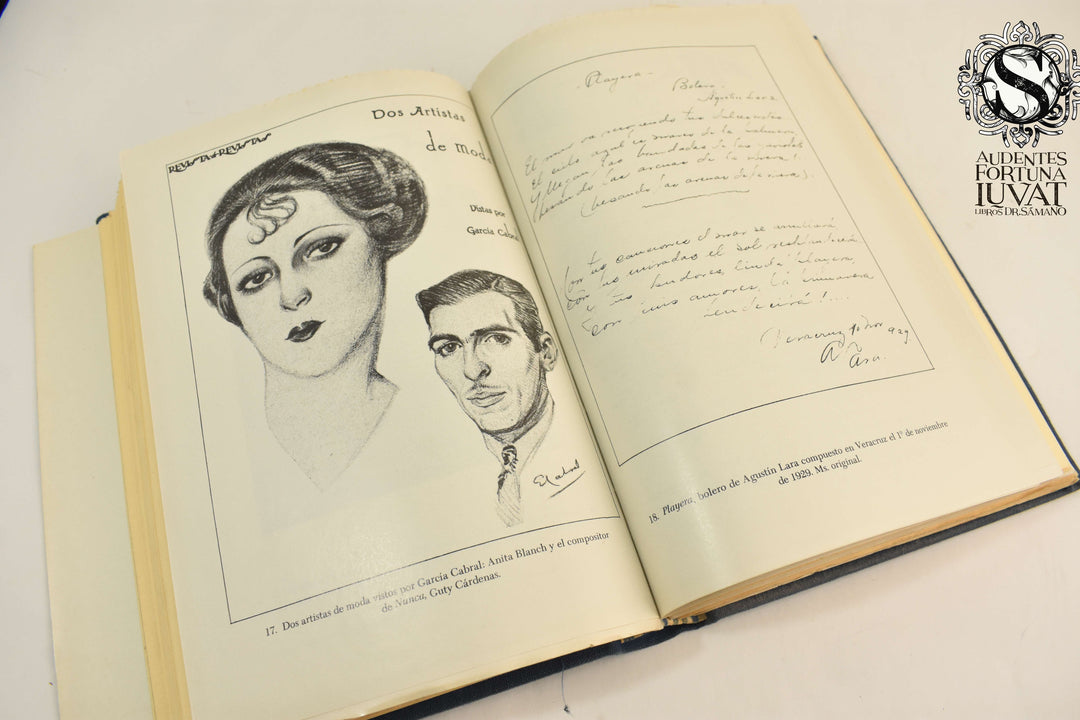 REVISTA DE REVISTAS
Dos Artistas
de Moda
Vistas por
García Cabral
ECabral
17. Dos artistas de moda vistos por García Cabral: Anita Blanch y el compositor
de Nunca, Guty Cárdenas.
Playera
Bolero
Agustín Lara
El mar va
El cielo azul
Y llegan, las
besando las arenas de la rivera!.
(besando las arenas de la rivera)
con tus canciones el mar se
con tus miradas el sol
y tus linda playera
con mis amores, la
Veracruz 1o Nov 929.
Lara.
18. Playera, bolero de Agustín Lara compuesto en Veracruz el 1º de noviembre
de 1929. Ms. original.
S
AUDENTES
FORTUNA
IUVAT
LIBROS DR. SÁMANO